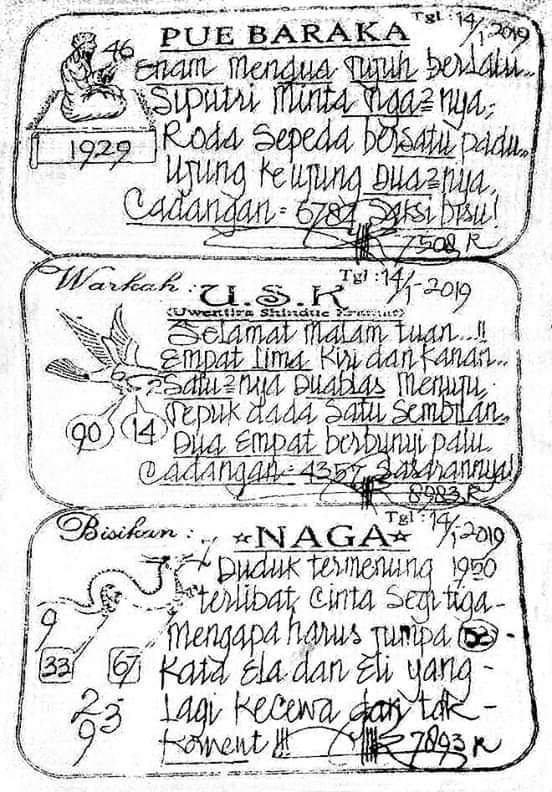 PUE BARAKA
Tgl : 14/1-2019
46
Enam mengua tujuh berlalu..
Siputri minta tiga²nya,
1929
Roda Sepeda bersatu padu..
Ujung keujung Dua²nya,
Cadangan = 6784 Saksi bisu!
7508 R
Warkah : U.S.K
Tgl : 14/1-2019
(Uwentira Shindue
Selamat malam tuan...!!
Empat lima Kiri dan kanan..
Satu²nya Duablas menuju,
90 14
Tepuk dada Satu Sembilan..
Dua Empat berbunyi palu.
Cadangan = 4357 Sasarannya!
8983 R
Bisikan : ☆NAGA☆
Tgl : 14/1-2019
Duduk termenung 1950
terlibat Cinta Segitiga -
9
mengapa harus jumpa 52 -
33 67
Kata Ela dan Eli yang -
2 3
9
Lagi kecewa dan tak -
Koment !!!
7893 R